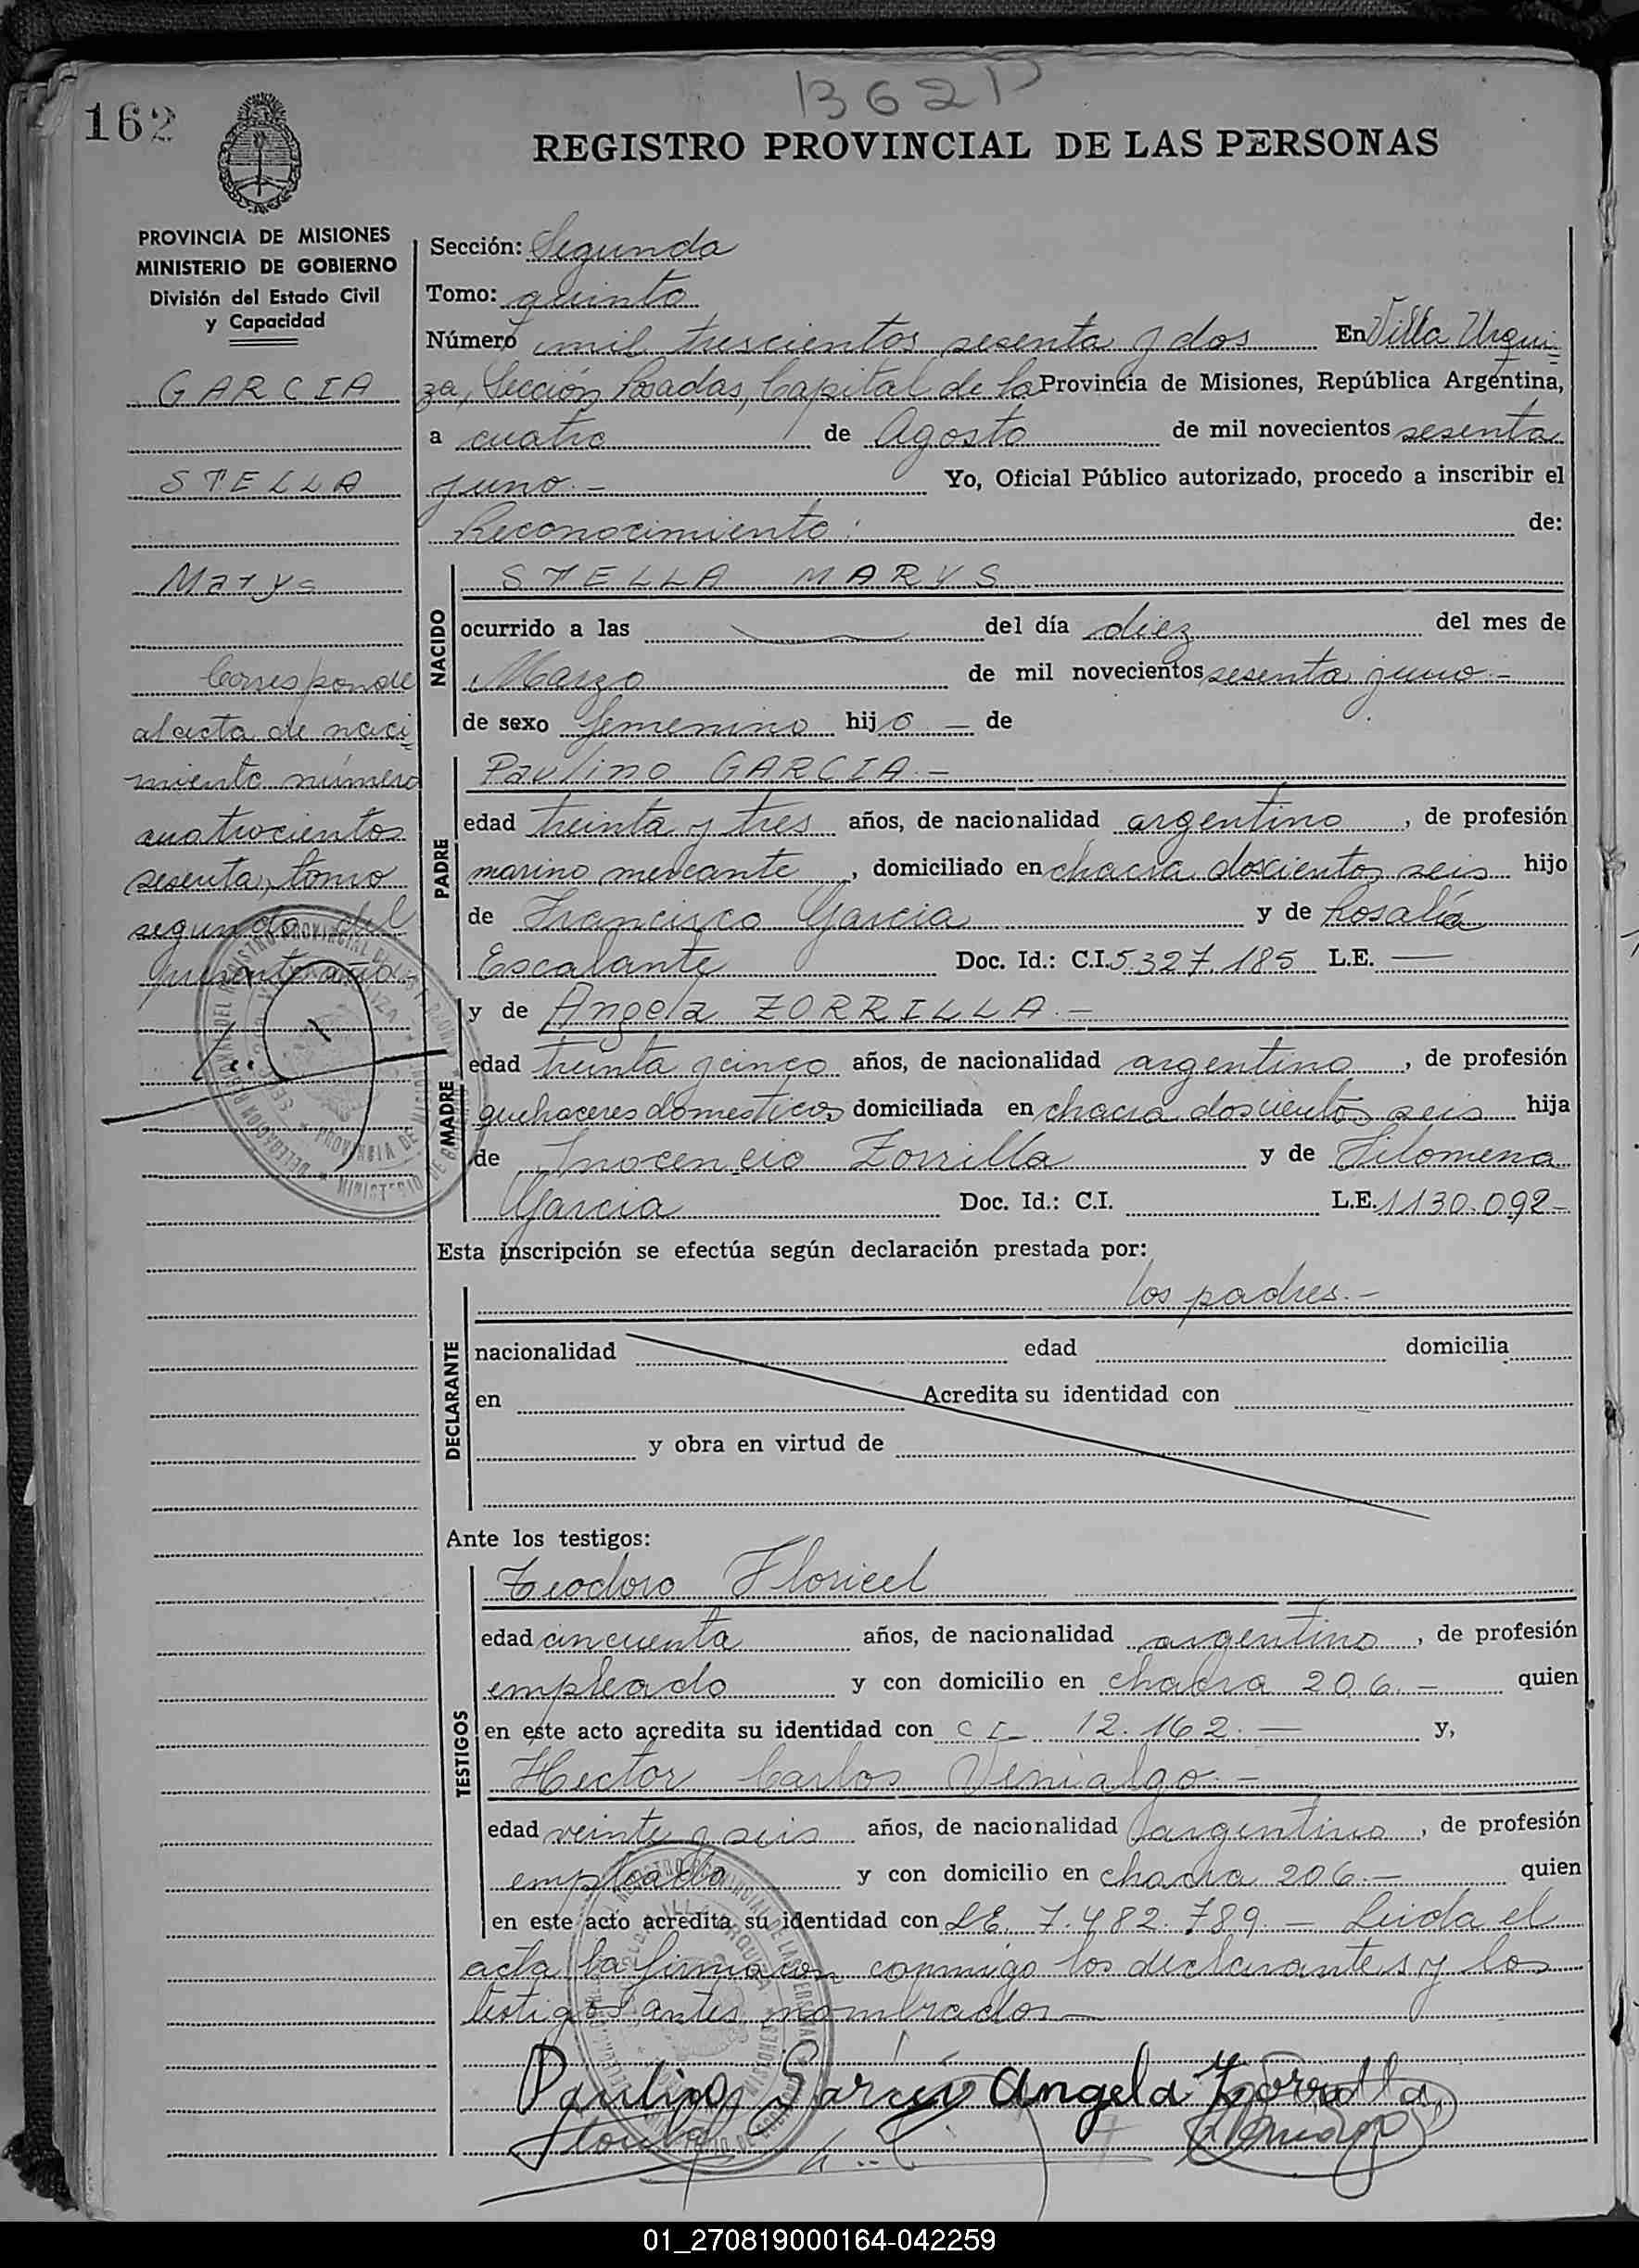 1362 D
162
REGISTRO PROVINCIAL DE LAS PERSONAS
PROVINCIA DE MISIONES
MINISTERIO DE GOBIERNO
División del Estado Civil
y Capacidad
GARCIA
STELLA
Marys
Corresponde
al acta de naci
miento número
cuatrocientos
sesenta, tomo
segundo del
presente año.-
Sección: Segunda
Tomo: quinto
Número mil trescientos sesenta y dos En Villa Urqui-
za, Sección Posadas, Capital de la Provincia de Misiones, República Argentina,
a cuatro de Agosto de mil novecientos sesenta
y uno.- Yo, Oficial Público autorizado, procedo a inscribir el
Reconocimiento: de:
NACIDO
STELLA MARYS
ocurrido a las del día diez del mes de
Marzo de mil novecientos sesenta y uno.-
de sexo femenino hijo - de
PADRE
Paulino GARCIA.-
edad treinta y tres años, de nacionalidad argentino, de profesión
marino mercante, domiciliado en chacra doscientos seis hijo
de Francisco Garcia y de Rosalía
Escalante Doc. Id.: C.I. 5.327.185 L.E. —
MADRE
y de Angela ZORRILLA.-
edad treinta y cinco años, de nacionalidad argentino, de profesión
quehaceres domesticos domiciliada en chacra doscientos seis hija
de Inocencio Zorrilla y de Filomena
Garcia Doc. Id.: C.I. L.E. 1130.092-
Esta inscripción se efectúa según declaración prestada por:
los padres.-
DECLARANTE
nacionalidad edad domicilia
en Acredita su identidad con
y obra en virtud de
Ante los testigos:
TESTIGOS
Teodoro Floricel
edad cincuenta años, de nacionalidad argentino, de profesión
empleado y con domicilio en chacra 206.- quien
en este acto acredita su identidad con C I 12.162.- y,
Hector Carlos Venialgo.-
edad veinte y seis años, de nacionalidad argentino, de profesión
empleado y con domicilio en chacra 206.- quien
en este acto acredita su identidad con L.E. 7.482.789.- Leida el
acta la firmaron conmigo los declarantes y los
testigos antes nombrados-
Paulino Garcia Angela Zorrilla
01_270819000164-042259